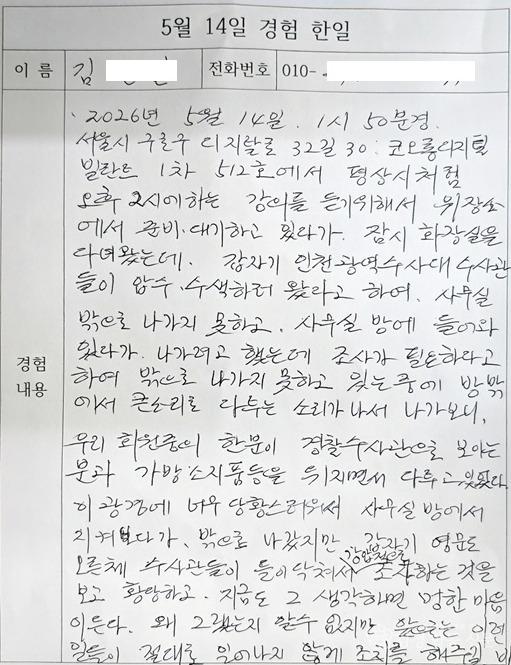 5월 14일 경험 한일
이 름 김 전화번호 010-
경험
내용
· 2026년 5월 14일. 1시 50분경.
서울시 구로구 디지탈로 32길 30. 코오롱디지털
빌란트 1차 512호에서 평상시처럼
오후 2시에하는 강의를 듣기위해서 위장소
에서 준비·대기하고 있다가. 잠시 화장실을
다녀왔는데. 갑자기 인천광역수사대 수사관
들이 압수·수색하러 왔다라고 하여. 사무실
밖으로 나가지 못하고. 사무실 방에 들어와
있다가. 나가려고 했는데 조사가 필요하다고
하여 밖으로 나가지 못하고 있는 중에 방밖
에서 큰소리로 다투는 소리가 나서 나가보니,
우리 회원중의 한분이 경찰수사관으로 보이는
분과 가방·소지품등을 뒤지면서 다투고 있었다.
이 광경에 너무 당황스러워서 사무실 방에서
지켜보다가, 밖으로 나갔지만, 갑자기 영문도
모른체 수사관들이 들이닥쳐서 강압적으로 조사하는 것을
보고 황당하고. 지금도 그 생각하면 멍한 마음
이든다. 왜 그랬는지 알수 없지만 앞으로는 이런
일들이 절대로 일어나지 않게 조치를 해주길 바